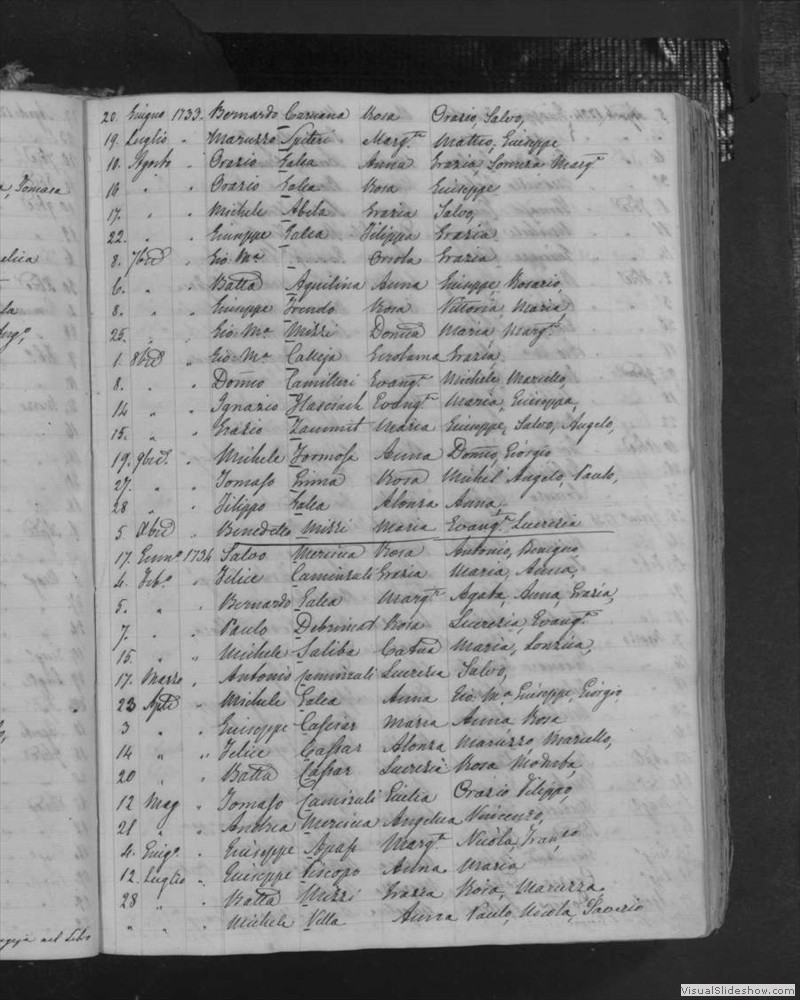 20. Giugno 1733. Bernardo Caruana Rosa Orazio, Salvo,
19. Luglio " Maruzzo Spiteri Marg.ta Matteo, Giuseppe
10. Agosto " Orazio Galea Anna Grazia, Lorenza Marg.ta
16 " " Orazio Galea Rosa Giuseppe
17. " " Michele Abela Grazia Salvo,
22. " " Giuseppe Galea Filippa Grazia
8. 7bre " Gio: M.a Orsola Grazia
6. " " Batta Aquilina Anna Giuseppe, Rosario,
8. " " Giuseppe Frendo Rosa Vittoria, Maria,
25. " " Gio: M.a Mizzi Domca Maria Marg.ta
1. 8bre " Gio: M.a Calleja Gerolama Grazia
8. " " Domco Camilleri Evang.ta Michele Mariello,
14 " " Ignazio Haxiach Evang.ta Maria, Giuseppa,
15. " " Grazio Zammit Maria Giuseppe, Salvo, Angelo,
19. 9bre. " Michele Formosa Anna Domco, Giorgio
27. " " Tomaso Grima Rosa Michel' Angelo, Paulo,
28 " " Filippo Galea Alonza Anna,
5. Xbre " Benedetto Mizzi Maria Evang.ta Lucrezia
17. Genn.o 1734 Salvo Mercieca Rosa Antonio, Benigno,
4. Feb.o " Felice Caminzuli Grazia Maria, Anna,
5. " " Bernardo Galea Marg.ta Agata, Anna, Grazia,
7. " " Paulo Debrincat Rosa Lucrezia, Evang.ta
15. " " Michele Saliba Catna Maria, Lonzica,
17. Marzo " Antonio Caminzuli Lucrezia Salvo,
23 Aple " Michele Galea Anna Gio: M.a Giuseppe, Giorgio
3 " " Giuseppe Cassar Maria Anna Rosa
14 " " Felice Cassar Alonza Maruzzo, Mariello,
20 " " Batta Cassar Lucrezia Rosa
12 Mag " Tomaso Caminzuli Giulia Orazio Filippo,
21 " " Andrea Mercieca Angelica Vincenzo,
4. Giug.o " Giuseppe Apap Marg.ta Nicola, Fran.co
12. Luglio " Giuseppe Piscopo Anna Maria
28 " " Batta Mizzi Grazia Rosa, Maruzza,
" " " Michele Vella Anna Paulo, Nicola, Saverio
Tomasa
VisualSlideshow.com